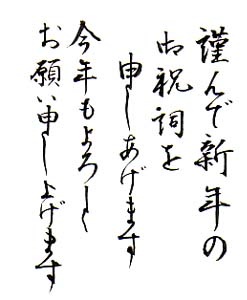 謹んで新年の
御祝詞を
申しあげます
今年もよろしく
お願い申し上げます